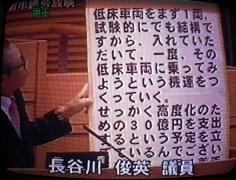 市議会放映
再生
低床車両をまず1両、
試験的にでも結構で
すから、入れていた
だいて、一度、その
低床車両に乗ってみ
ようという機運をつ
くっていく。
せっかく高度化のた
めの30億円を支出
するという予定を立
ているんでござい
長谷川 俊英 議員